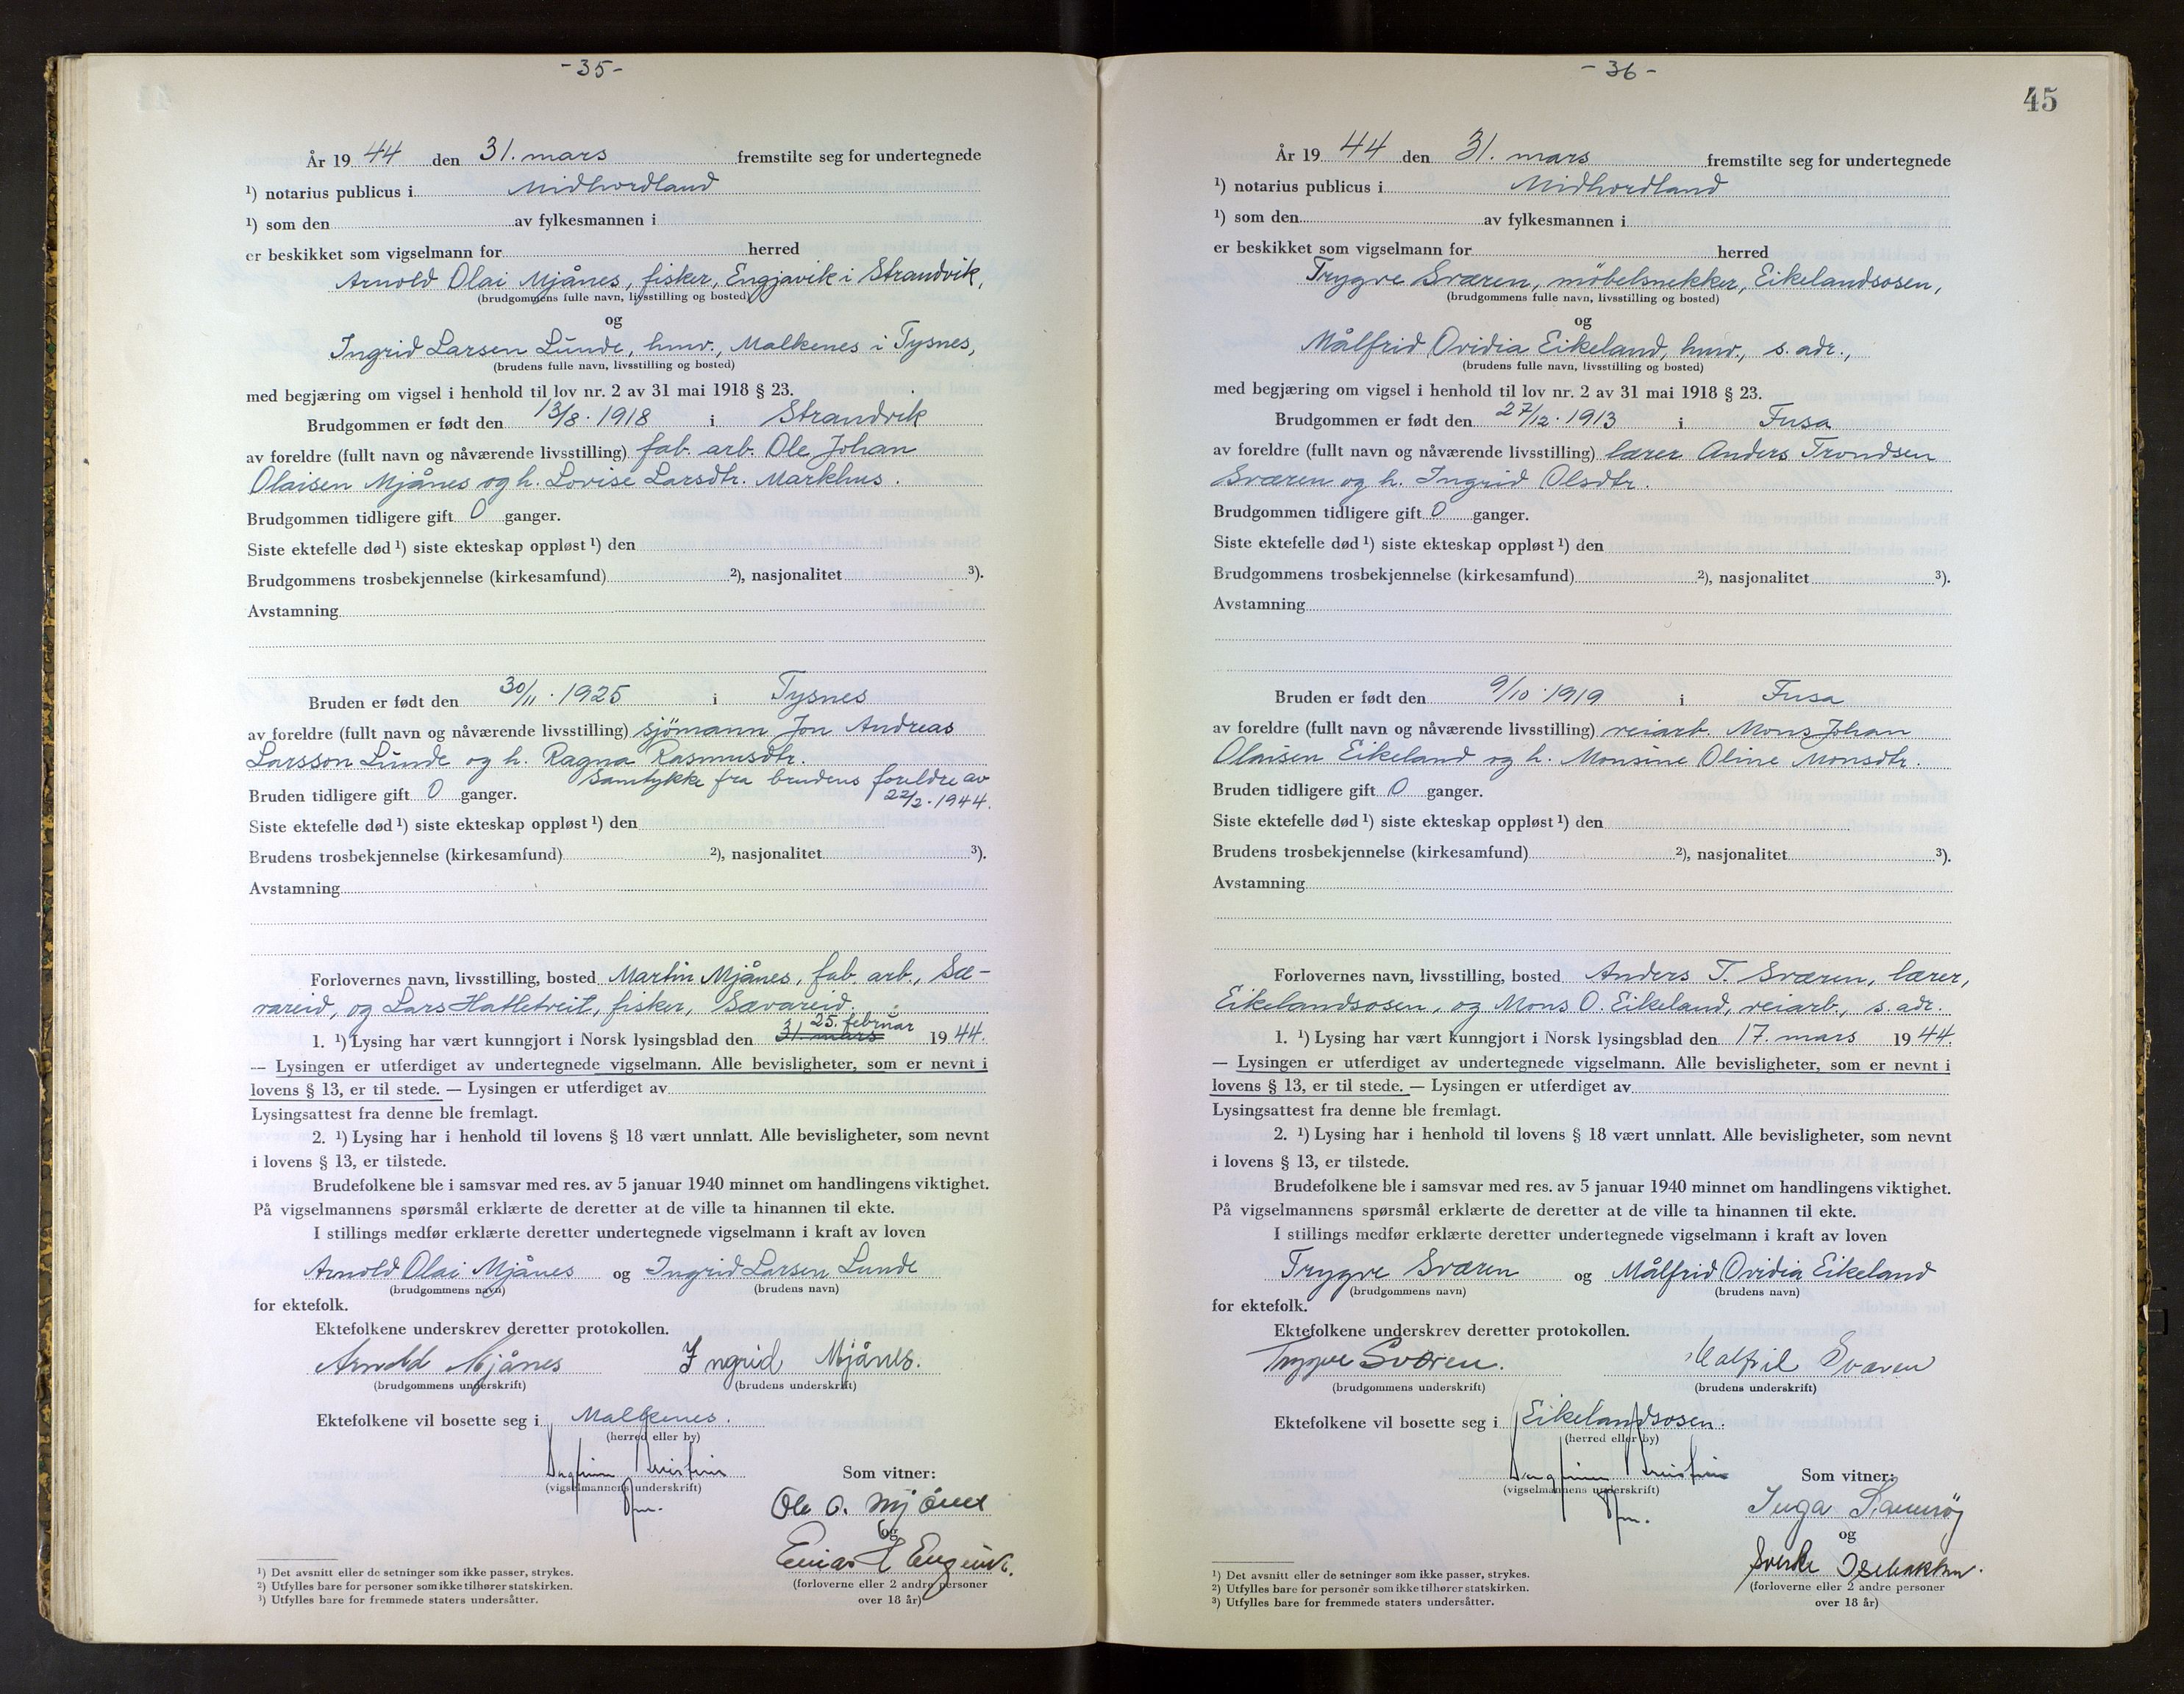 -35-
År 19 44 den 31. mars fremstilte seg for undertegnede
¹) notarius publicus i Midhordland
¹) som den av fylkesmannen i
er beskikket som vigselmann for herred
Arnold Olai Mjånes, fisker, Engjavik i Strandvik,
(brudgommens fulle navn, livsstilling og bosted)
og
Ingrid Larsen Lunde, hmv., Malkenes i Tysnes,
(brudens fulle navn, livsstilling og bosted)
med begjæring om vigsel i henhold til lov nr. 2 av 31 mai 1918 § 23.
Brudgommen er født den 13/8. 1918 i Strandvik
av foreldre (fullt navn og nåværende livsstilling) fab. arb. Ole Johan
Olaisen Mjånes og h. Lovise Larsdtr. Markhus.
Brudgommen tidligere gift 0 ganger.
Siste ektefelle død ¹) siste ekteskap oppløst ¹) den
Brudgommens trosbekjennelse (kirkesamfund) ²), nasjonalitet ³).
Avstamning
Bruden er født den 30/11. 1925 i Tysnes
av foreldre (fullt navn og nåværende livsstilling) sjömann Jon Andreas
Larsson Lunde og h. Ragna Rasmusdtr.
Samtykke fra brudens foreldre av
Bruden tidligere gift 0 ganger. 22/2. 1944.
Siste ektefelle død ¹) siste ekteskap oppløst ¹) den
Brudens trosbekjennelse (kirkesamfund) ²), nasjonalitet ³).
Avstamning
Forlovernes navn, livsstilling, bosted Martin Mjånes, fab. arb., Sæ-
vareid, og Lars Hatletveit, fisker, Sævareid.
25. februar
1. ¹) Lysing har vært kunngjort i Norsk lysingsblad den 31 mars 19 44.
— Lysingen er utferdiget av undertegnede vigselmann. Alle bevisligheter, som er nevnt i
lovens § 13, er til stede. — Lysingen er utferdiget av
Lysingsattest fra denne ble fremlagt.
2. ¹) Lysing har i henhold til lovens § 18 vært unnlatt. Alle bevisligheter, som nevnt
i lovens § 13, er tilstede.
Brudefolkene ble i samsvar med res. av 5 januar 1940 minnet om handlingens viktighet.
På vigselmannens spørsmål erklærte de deretter at de ville ta hinannen til ekte.
I stillings medfør erklærte deretter undertegnede vigselmann i kraft av loven
Arnold Olai Mjånes og Ingrid Larsen Lunde
(brudgommens navn) (brudens navn)
for ektefolk.
Ektefolkene underskrev deretter protokollen.
Arnold Mjånes Ingrid Mjånes.
(brudgommens underskrift) (brudens underskrift)
Ektefolkene vil bosette seg i Malkenes.
(herred eller by)
Som vitner:
(vigselmannens underskrift)
Ole O. Mjånes
og
(forloverne eller 2 andre personer
over 18 år)
¹) Det avsnitt eller de setninger som ikke passer, strykes.
²) Utfylles bare for personer som ikke tilhører statskirken.
³) Utfylles bare for fremmede staters undersåtter.
-36-
45
År 19 44 den 31. mars fremstilte seg for undertegnede
¹) notarius publicus i Midhordland
¹) som den av fylkesmannen i
er beskikket som vigselmann for herred
Trygve Sværen, möbelsnekker, Eikelandsosen,
(brudgommens fulle navn, livsstilling og bosted)
og
Målfrid Ovidia Eikeland, hmv., s. adr.,
(brudens fulle navn, livsstilling og bosted)
med begjæring om vigsel i henhold til lov nr. 2 av 31 mai 1918 § 23.
Brudgommen er født den 27/12. 1913 i Fusa
av foreldre (fullt navn og nåværende livsstilling) lærer Anders Trondsen
Sværen og h. Ingrid Olsdtr.
Brudgommen tidligere gift 0 ganger.
Siste ektefelle død ¹) siste ekteskap oppløst ¹) den
Brudgommens trosbekjennelse (kirkesamfund) ²), nasjonalitet ³).
Avstamning
Bruden er født den 9/10. 1919 i Fusa
av foreldre (fullt navn og nåværende livsstilling) veiarb. Mons Johan
Olaisen Eikeland og h. Monsine Oline Monsdtr.
Bruden tidligere gift 0 ganger.
Siste ektefelle død ¹) siste ekteskap oppløst ¹) den
Brudens trosbekjennelse (kirkesamfund) ²), nasjonalitet ³).
Avstamning
Forlovernes navn, livsstilling, bosted Anders T. Sværen, lærer,
Eikelandsosen, og Mons O. Eikeland, veiarb., s. adr.
1. ¹) Lysing har vært kunngjort i Norsk lysingsblad den 17. mars 19 44.
— Lysingen er utferdiget av undertegnede vigselmann. Alle bevisligheter, som er nevnt i
lovens § 13, er til stede. — Lysingen er utferdiget av
Lysingsattest fra denne ble fremlagt.
2. ¹) Lysing har i henhold til lovens § 18 vært unnlatt. Alle bevisligheter, som nevnt
i lovens § 13, er tilstede.
Brudefolkene ble i samsvar med res. av 5 januar 1940 minnet om handlingens viktighet.
På vigselmannens spørsmål erklærte de deretter at de ville ta hinannen til ekte.
I stillings medfør erklærte deretter undertegnede vigselmann i kraft av loven
Trygve Sværen og Målfrid Ovidia Eikeland
(brudgommens navn) (brudens navn)
for ektefolk.
Ektefolkene underskrev deretter protokollen.
Trygve Sværen. Malfrid Sværen
(brudgommens underskrift) (brudens underskrift)
Ektefolkene vil bosette seg i Eikelandsosen.
(herred eller by)
Som vitner:
(vigselmannens underskrift)
Inga
og
(forloverne eller 2 andre personer
over 18 år)
¹) Det avsnitt eller de setninger som ikke passer, strykes.
²) Utfylles bare for personer som ikke tilhører statskirken.
³) Utfylles bare for fremmede staters undersåtter.